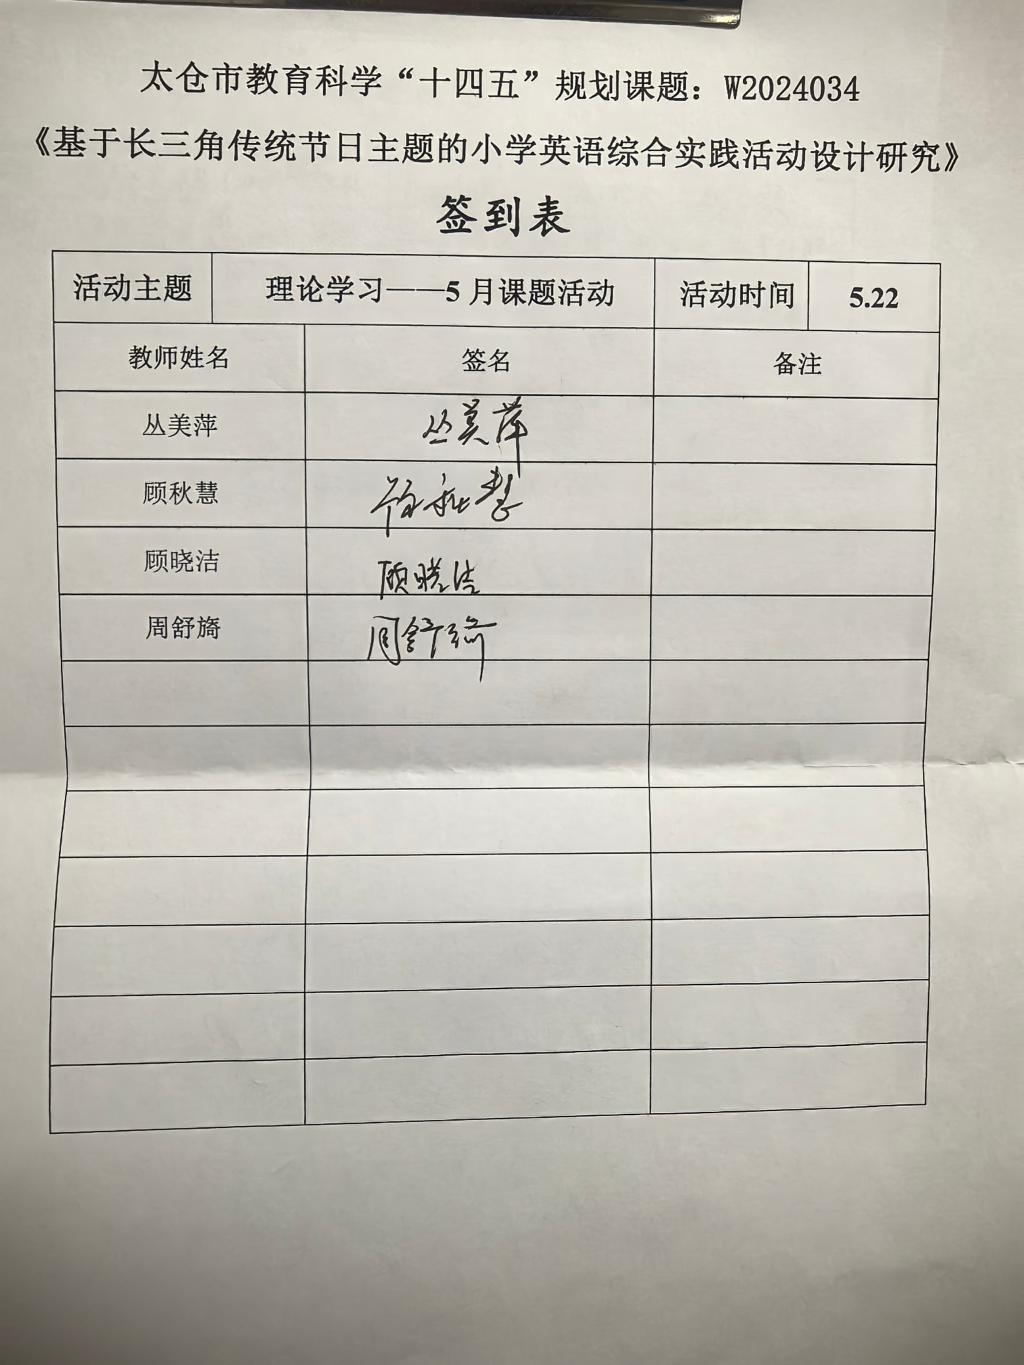 太仓市教育科学“十四五”规划课题：W2024034
《基于长三角传统节日主题的小学英语综合实践活动设计研究》
签到表
活动主题 理论学习——5月课题活动 活动时间 5.22
教师姓名 签名 备注
丛美萍 丛美萍
顾秋慧 顾秋慧
顾晓洁 顾晓洁
周舒旖 周舒旖